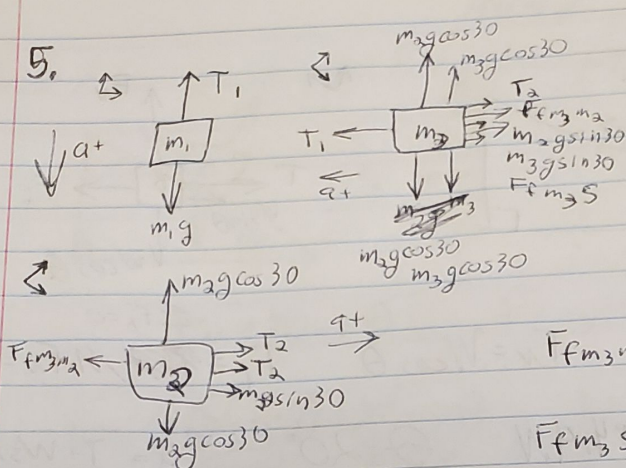 5.
T₁
m₁
a+
m₁g
m₂gcos30
m₃gcos30
T₂
Ffm₃m₂
m₂gsin30
m₃gsin30
Ffm₃s
T₁
a+
m₂gcos30
m₃gcos30
m₂gcos30
Ffm₃m₂
T₂
T₂
a+
m₂gcos30
Ffm₃
Ffm₃s